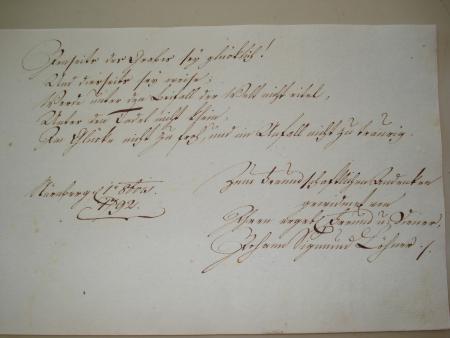 Jenseits des Grabes sey glücklich!
Und diesseits sey weise;
Werde unter dem Beifall der Welt nicht eitel,
Unter dem Tadel nicht klein,
Im Glücke nicht zu froh, und im Unfall nicht zu traurig.
Nürnberg d.
1792.
Zum freundschaftlichen Andenken
gewidmet von
Ihrem ergeb. Freund u. Diener,
Johann Sigmund Löhner